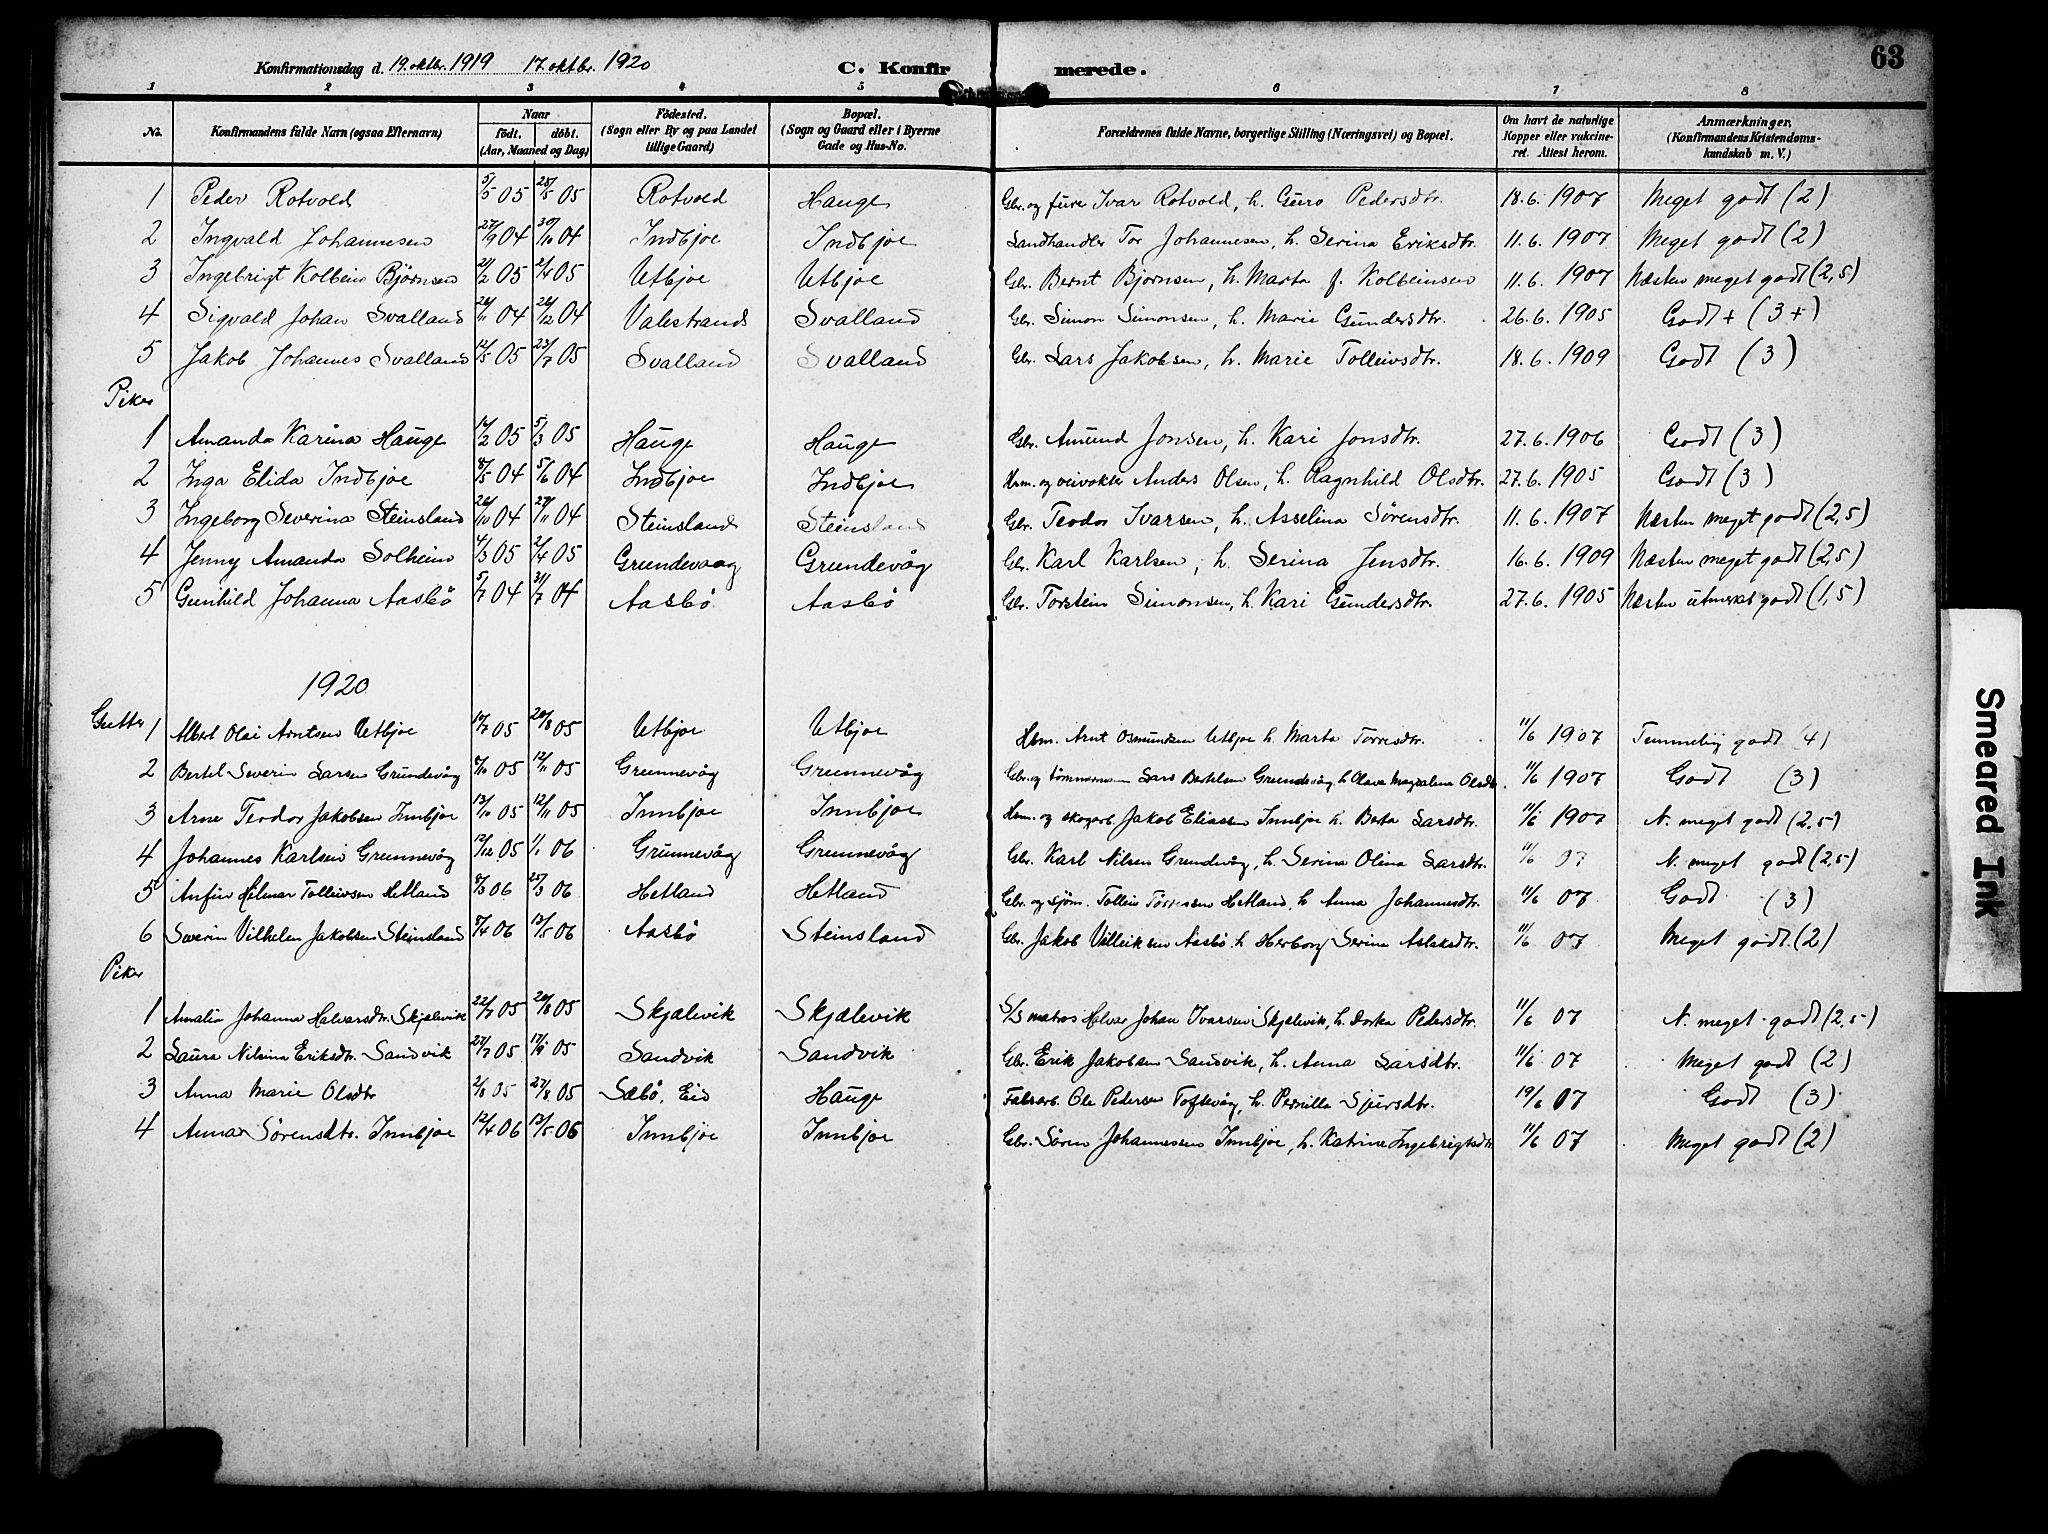 63
Konfirmationsdag d. 19. oktbr. 1919 17. oktbr. 1920 C. Konfirmerede.
1 2 3 4 5 6 7 8
No. Konfirmandens fulde Navn (ogsaa Efternavn) Naar født. døbt. (Aar, Maaned og Dag) Fødested. (Sogn eller By og paa Landet tillige Gaard) Bopæl. (Sogn og Gaard eller i Byerne Gade og Hus-No. Forældrenes fulde Navne, borgerlige Stilling (Næringsvei) og Bopæl. Om havt de naturlige Kopper eller vakcineret. Attest herom. Anmærkninger, (Konfirmandens Kristendomskundskab m. V.)
1 Peder Rotvold 5/5 05 28/5 05 Rotvold Hauge Gbr. og fører Ivar Rotvold, h. Guro Pedersdtr. 18.6.1907 Meget godt (2)
2 Ingvald Johannesen 27/9 04 30/10 04 Indbjoe Indbjoe Landhandler Tor Johannesen, h. Serina Eriksdtr. 11.6.1907 Meget godt (2)
3 Ingebrigt Kolbein Bjørnsen 21/2 05 2/4 05 Utbjoe Utbjoe Gbr. Bernt Bjørnsen, h. Marta f. Kolbeinsen 11.6.1907 Næsten meget godt (2,5)
4 Sigvald Johan Svalland 26/11 04 26/12 04 Valestrand Svalland Gbr. Simon Simonsen, h. Marie Gundersdtr. 26.6.1905 Godt + (3+)
5 Jakob Johannes Svalland 12/5 05 23/7 05 Svalland Svalland Gbr. Lars Jakobsen, h. Marie Tolleivsdtr. 18.6.1909 Godt (3)
Piker
1 Amanda Karina Hauge 14/2 05 5/3 05 Hauge Hauge Gbr. Amund Jonsen, h. Kari Jonsdtr. 27.6.1906 Godt (3)
2 Inga Elida Indbjoe 8/5 04 5/6 04 Indbjoe Indbjoe Hsm. og veivokter Anders Olsen, h. Ragnhild Olsdtr. 27.6.1905 Godt (3)
3 Ingeborg Severina Steinsland 26/10 04 27/11 04 Steinsland Steinsland Gbr. Teodor Ivarsen, h. Asselina Sørensdtr. 11.6.1907 Næsten meget godt (2,5)
4 Jenny Amanda Solheim 4/3 05 2/4 05 Grundevaag Grundevåg Gbr. Karl Karlsen, h. Serina Jensdtr. 16.6.1909 Næsten meget godt (2,5)
5 Gunhild Johanna Aasbö 5/7 04 31/7 04 Aasbö Aasbö Gbr. Torstein Simonsen, h. Kari Gundersdtr. 27.6.1905 Næsten utmerket godt (1,5)
1920
Gutter 1 Albert Olai Arntsen Utbjoe 14/7 05 20/8 05 Utbjoe Utbjoe Hsm. Arnt Osmundsen Utbjoe h. Marta Torresdtr. 11/6 1907 Temmelig godt (4)
2 Bertel Severin Larsen Grundevåg 8/10 05 12/11 05 Grunnevåg Grunnevåg Gbr. og tømmermann Lars Bertelsen Grundevåg, h. Olava Magdalena Olsdtr. 11/6 1907 Godt (3)
3 Arne Teodor Jakobsen Innbjoe 13/10 05 12/11 05 Innbjoe Innbjoe Hsm. og skogarb. Jakob Eliassen Innbjoe h. Berta Larsdtr. 11/6 1907 N. meget godt (2,5)
4 Johannes Karlsen Grunnevåg 12/12 05 1/1 06 Grunnevåg Grunnevåg Gbr. Karl Nilsen Grundevåg, h. Serina Olina Larsdtr. 11/6 07 N. meget godt (2,5)
5 Anfin Hilmar Tolleivsen Hetland 8/3 06 25/3 06 Hetland Hetland Gbr. og sjøm. Tolleiv Hetland, h. Anna Johannesdtr. 11/6 07 Godt (3)
6 Severin Vilhelm Jakobsen Steinsland 8/4 06 13/5 06 Aasbö Steinsland Gbr. Jakob Villeiksen Aasbö h. Herborg Serina Aslaksdtr. 11/6 07 Meget godt (2)
Piker
1 Amalia Johanna Halvarsdtr. Skjælevik 22/7 05 20/8 05 Skjælevik Skjælevik S/S matros Halvar Johan Ivarsen Skjælevik, h. Dorka Pedersdtr. 11/6 07 N. meget godt (2,5)
2 Laura Nilsina Eriksdtr. Sandvik 27/7 05 17/9 05 Sandvik Sandvik Gbr. Erik Jakobsen Sandvik, h. Anna Larsdtr. 11/6 07 Meget godt (2)
3 Anna Marie Olsdtr 2/8 05 27/8 05 Sæbö, Eid Hauge Fabrarb. Ole Pedersen Toftevåg, h. Pernilla Sjursdtr. 19/6 07 Godt (3)
4 Anna Sørensdtr. Innbjoe 12/4 06 13/5 06 Innbjoe Innbjoe Gbr. Søren Johannessen Innbjoe, h. Katrine Ingebrigtsdtr. 11/6 07 Meget godt (2)
Smeared Ink